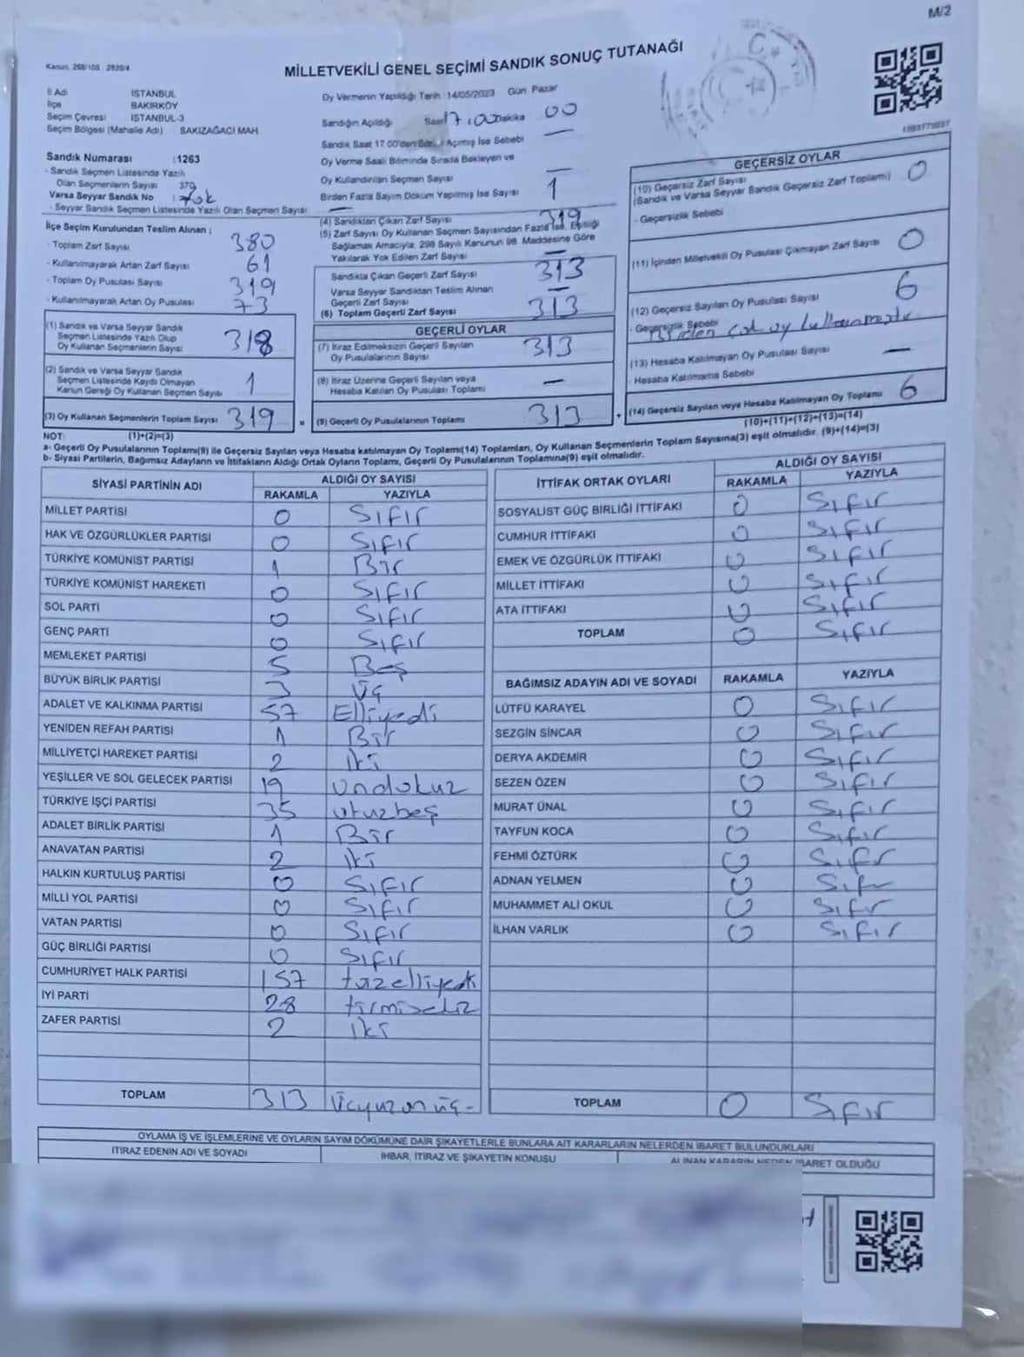 M/2
MİLLETVEKİLİ GENEL SEÇİMİ SANDIK SONUÇ TUTANAĞI
İl Adı İSTANBUL
İlçe BAKIRKÖY
Seçim Çevresi İSTANBUL-3
Seçim Bölgesi (Mahalle Adı) SAKIZAĞACI MAH.
Sandık Numarası :1263
- Sandık Seçmen Listesinde Yazılı
Olan Seçmenlerin Sayısı 379
Varsa Seyyar Sandık No : Yok
- Seyyar Sandık Seçmen Listesinde Yazılı Olan Seçmen Sayısı
İlçe Seçim Kurulundan Teslim Alınan ;
- Toplam Zarf Sayısı 380
- Kullanılmayarak Artan Zarf Sayısı 61
- Toplam Oy Pusulası Sayısı 319
- Kullanılmayarak Artan Oy Pusulası 73
(1) Sandık ve Varsa Seyyar Sandık
Seçmen Listesinde Yazılı Olup
Oy Kullanan Seçmenlerin Sayısı 318
(2) Sandık ve Varsa Seyyar Sandık
Seçmen Listesinde Kaydı Olmayan
Kanun Gereği Oy Kullanan Seçmen Sayısı 1
(3) Oy Kullanan Seçmenlerin Toplam Sayısı 319
Oy Vermenin Yapıldığı Tarih :14/05/2023 Gün: Pazar
Sandığın Açıldığı Saat 17:00 Dakika 00
Sandık Saat 17.00'den Açılmış İse Sebebi —
Oy Verme Saati Bitiminde Sırada Bekleyen ve
Oy Kullandırılan Seçmen Sayısı —
Birden Fazla Sayım Döküm Yapılmış İse Sayısı 1
(4) Sandıktan Çıkan Zarf Sayısı 319
(5) Zarf Sayısı Oy Kullanan Seçmen Sayısından Fazla İse, Eşitliği
Sağlamak Amacıyla, 298 Sayılı Kanunun 98. Maddesine Göre
Yakılarak Yok Edilen Zarf Sayısı —
Sandıkta Çıkan Geçerli Zarf Sayısı 313
Varsa Seyyar Sandıktan Teslim Alınan
Geçerli Zarf Sayısı —
(6) Toplam Geçerli Zarf Sayısı 313
GEÇERLİ OYLAR
(7) İtiraz Edilmeksizin Geçerli Sayılan
Oy Pusulalarının Sayısı 313
(8) İtiraz Üzerine Geçerli Sayılan veya
Hesaba Katılan Oy Pusulası Toplamı —
(9) Geçerli Oy Pusulalarının Toplamı 313
GEÇERSİZ OYLAR
(10) Geçersiz Zarf Sayısı 0
(Sandık ve Varsa Seyyar Sandık Geçersiz Zarf Toplamı)
- Geçersizlik Sebebi
(11) İçinden Milletvekili Oy Pusulası Çıkmayan Zarf Sayısı 0
(12) Geçersiz Sayılan Oy Pusulası Sayısı 6
- Geçersizlik Sebebi Birden çok oy kullanmıştır
(13) Hesaba Katılmayan Oy Pusulası Sayısı —
- Hesaba Katılmama Sebebi
(14) Geçersiz Sayılan veya Hesaba Katılmayan Oy Toplamı 6
(10)+(11)+(12)+(13)=(14)
NOT: (1)+(2)=(3)
a- Geçerli Oy Pusulalarının Toplamı(9) ile Geçersiz Sayılan veya Hesaba katılmayan Oy Toplamı(14) Toplamları, Oy Kullanan Seçmenlerin Toplam Sayısına(3) eşit olmalıdır. (9)+(14)=(3)
b- Siyasi Partilerin, Bağımsız Adayların ve İttifakların Aldığı Ortak Oyların Toplamı, Geçerli Oy Pusulalarının Toplamına(9) eşit olmalıdır.
SİYASİ PARTİNİN ADI ALDIĞI OY SAYISI
RAKAMLA YAZIYLA
MİLLET PARTİSİ 0 Sıfır
HAK VE ÖZGÜRLÜKLER PARTİSİ 0 Sıfır
TÜRKİYE KOMÜNİST PARTİSİ 1 Bir
TÜRKİYE KOMÜNİST HAREKETİ 0 Sıfır
SOL PARTİ 0 Sıfır
GENÇ PARTİ 0 Sıfır
MEMLEKET PARTİSİ 5 Beş
BÜYÜK BİRLİK PARTİSİ 3 Üç
ADALET VE KALKINMA PARTİSİ 57 Elliyedi
YENİDEN REFAH PARTİSİ 1 Bir
MİLLİYETÇİ HAREKET PARTİSİ 2 İki
YEŞİLLER VE SOL GELECEK PARTİSİ 19 Ondokuz
TÜRKİYE İŞÇİ PARTİSİ 35 otuzbeş
ADALET BİRLİK PARTİSİ 1 Bir
ANAVATAN PARTİSİ 2 İki
HALKIN KURTULUŞ PARTİSİ 0 Sıfır
MİLLİ YOL PARTİSİ 0 Sıfır
VATAN PARTİSİ 0 Sıfır
GÜÇ BİRLİĞİ PARTİSİ 0 Sıfır
CUMHURİYET HALK PARTİSİ 157 yüzelliyedi
İYİ PARTİ 28 yirmisekiz
ZAFER PARTİSİ 2 İki
TOPLAM 313 Üçyüzonüç-
İTTİFAK ORTAK OYLARI ALDIĞI OY SAYISI
RAKAMLA YAZIYLA
SOSYALİST GÜÇ BİRLİĞİ İTTİFAKI 0 Sıfır
CUMHUR İTTİFAKI 0 Sıfır
EMEK VE ÖZGÜRLÜK İTTİFAKI 0 Sıfır
MİLLET İTTİFAKI 0 Sıfır
ATA İTTİFAKI 0 Sıfır
TOPLAM 0 Sıfır
BAĞIMSIZ ADAYIN ADI VE SOYADI RAKAMLA YAZIYLA
LÜTFÜ KARAYEL 0 Sıfır
SEZGİN SİNCAR 0 Sıfır
DERYA AKDEMİR 0 Sıfır
SEZEN ÖZEN 0 Sıfır
MURAT ÜNAL 0 Sıfır
TAYFUN KOCA 0 Sıfır
FEHMİ ÖZTÜRK 0 Sıfır
ADNAN YELMEN 0 Sıfır
MUHAMMET ALİ OKUL 0 Sıfır
İLHAN VARLIK 0 Sıfır
TOPLAM 0 Sıfır
OYLAMA İŞ VE İŞLEMLERİNE VE OYLARIN SAYIM DÖKÜMÜNE DAİR ŞİKAYETLERLE BUNLARA AİT KARARLARIN NELERDEN İBARET BULUNDUKLARI
İTİRAZ EDENİN ADI VE SOYADI İHBAR, İTİRAZ VE ŞİKAYETİN KONUSU ALINAN KARARIN NEDEN İBARET OLDUĞU